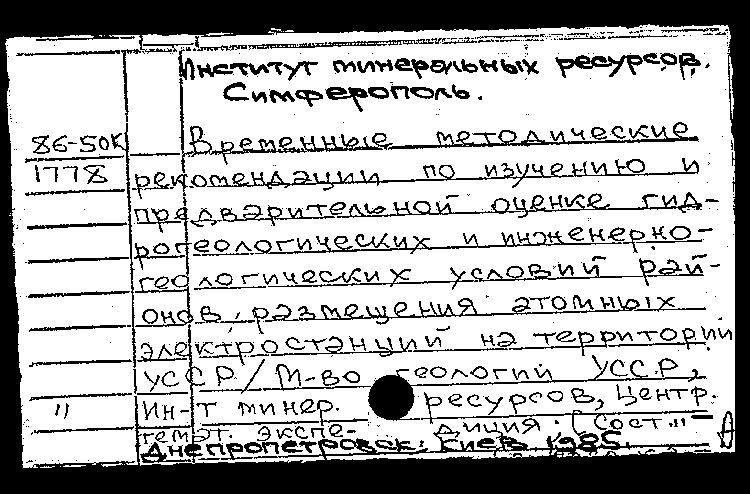 Институт минеральных ресурсов.
Симферополь.
86-50К Временные методические
1778 рекомендации по изучению и
предварительной оценке гид-
рогеологических и инженерно-
геологических условий рай-
онов размещения атомных
электростанций на территории
УССР / М-во геологий УССР,
" Ин-т минер. ресурсов, Центр.
темат. экспе- диция. (Сост.
Днепропетровск: Киев 1985.